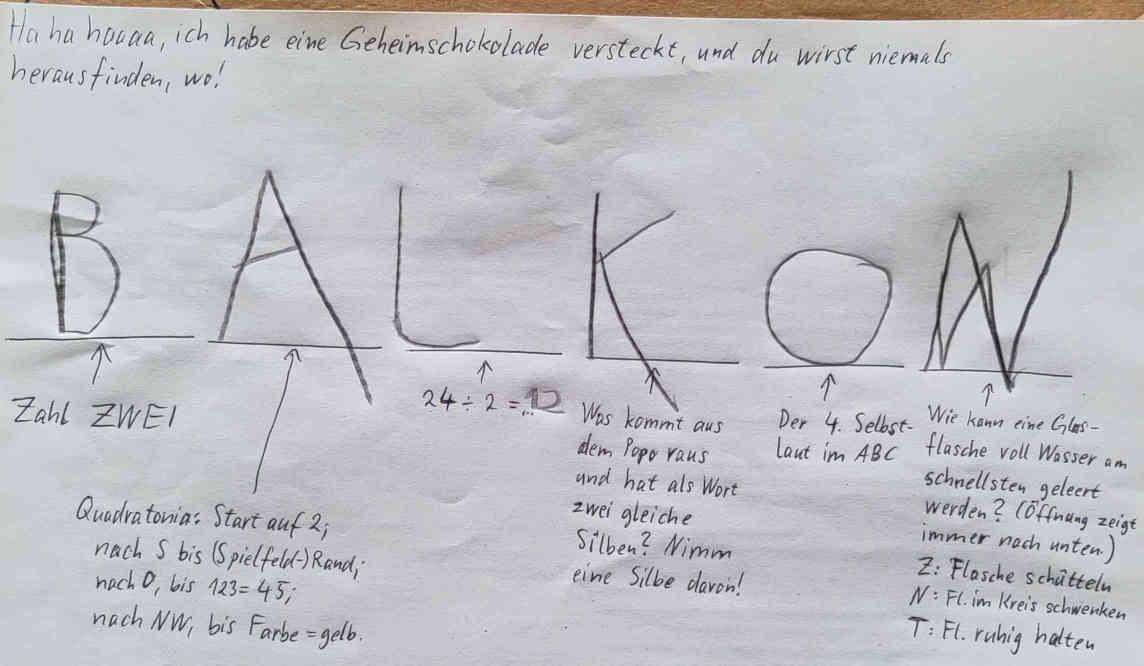 Ha ha haaaa, ich habe eine Geheimschokolade versteckt, und du wirst niemals
herausfinden, wo!
B A L K O N
Zahl ZWEI
Quadratonia: Start auf 2;
nach S bis (Spielfeld-)Rand;
nach O, bis 123=45;
nach NW, bis Farbe=gelb.
24÷2=... 12
Was kommt aus
dem Popo raus
und hat als Wort
zwei gleiche
Silben? Nimm
eine Silbe davon!
Der 4. Selbst-
laut im ABC
Wie kann eine Glas-
flasche voll Wasser am
schnellsten geleert
werden? (Öffnung zeigt
immer nach unten.)
Z: Flasche schütteln
N: Fl. im Kreis schwenken
T: Fl. ruhig halten